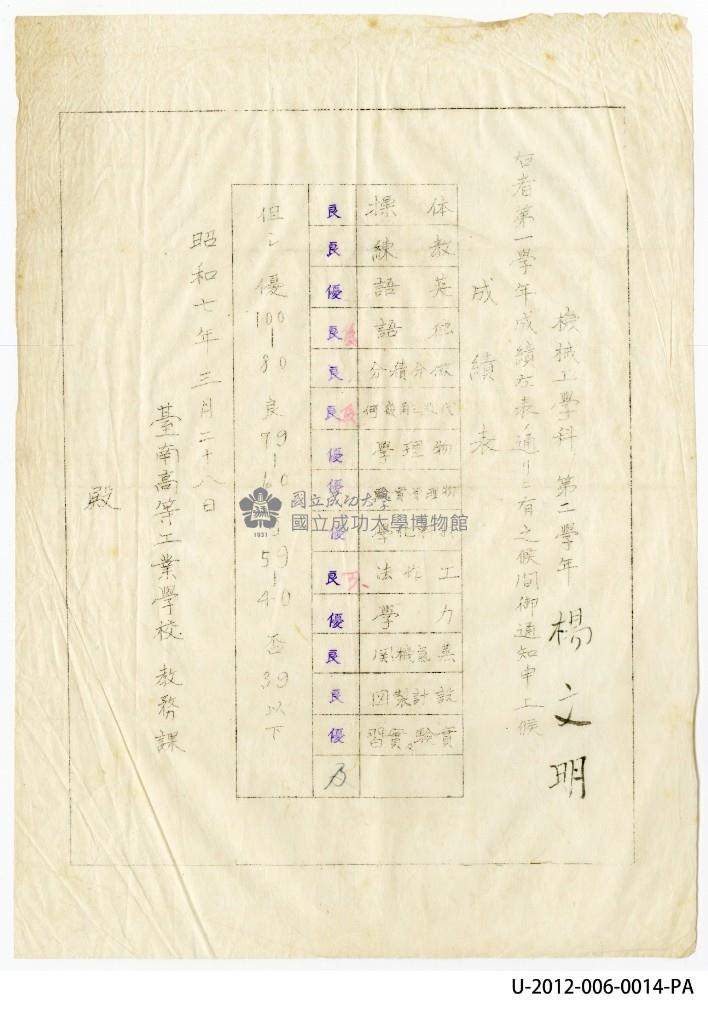 機械工學科 第二學年 楊文明
右者第一學年成績左表ノ通リニ有之候間御通知申上候
成績表
体操 良
教練 良
英語 優
語 良
微分積分 良
良
物理學 優
物理學實驗 優
優
工作法 良
力學 優
蒸氣機関 良
設計製図 良
實驗。實習 優
乃
但シ 優 100-80 良 79-60 59-40 否 39以下
昭和七年三月二十八日
臺南高等工業學校 教務課
殿
國立成功大學
國立成功大學博物館
1931
U-2012-006-0014-PA